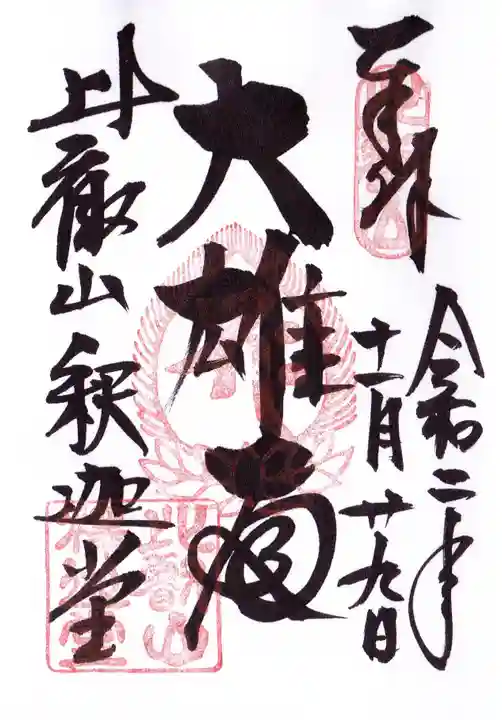 奉拝
令和二年
十一月廿九日
大雄
比叡山釈迦堂